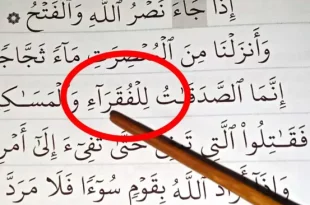 إِذَا جَآءَ نَصْرُ اللَّهِ وَالْفَتْحُ
وَأَنزَلْنَا مِنَ الْمُعْصِرَٰتِ مَآءً ثَجَّاجًا
إِنَّمَا الصَّدَقَٰتُ لِلْفُقَرَآءِ وَالْمَسَٰكِ
فَقَٰتِلُوا۟ الَّتِي تَبْغِي حَتَّىٰ تَفِيٓءَ إِلَىٰٓ أَمْرِ
وَإِذَآ أَرَادَ اللَّهُ بِقَوْمٍ سُوٓءًا فَلَا مَرَدَّ